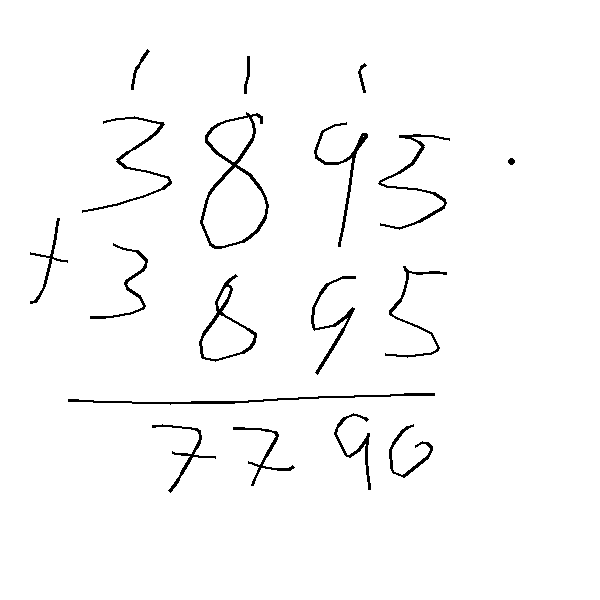 1 1 1
3895
+ 3895
7790